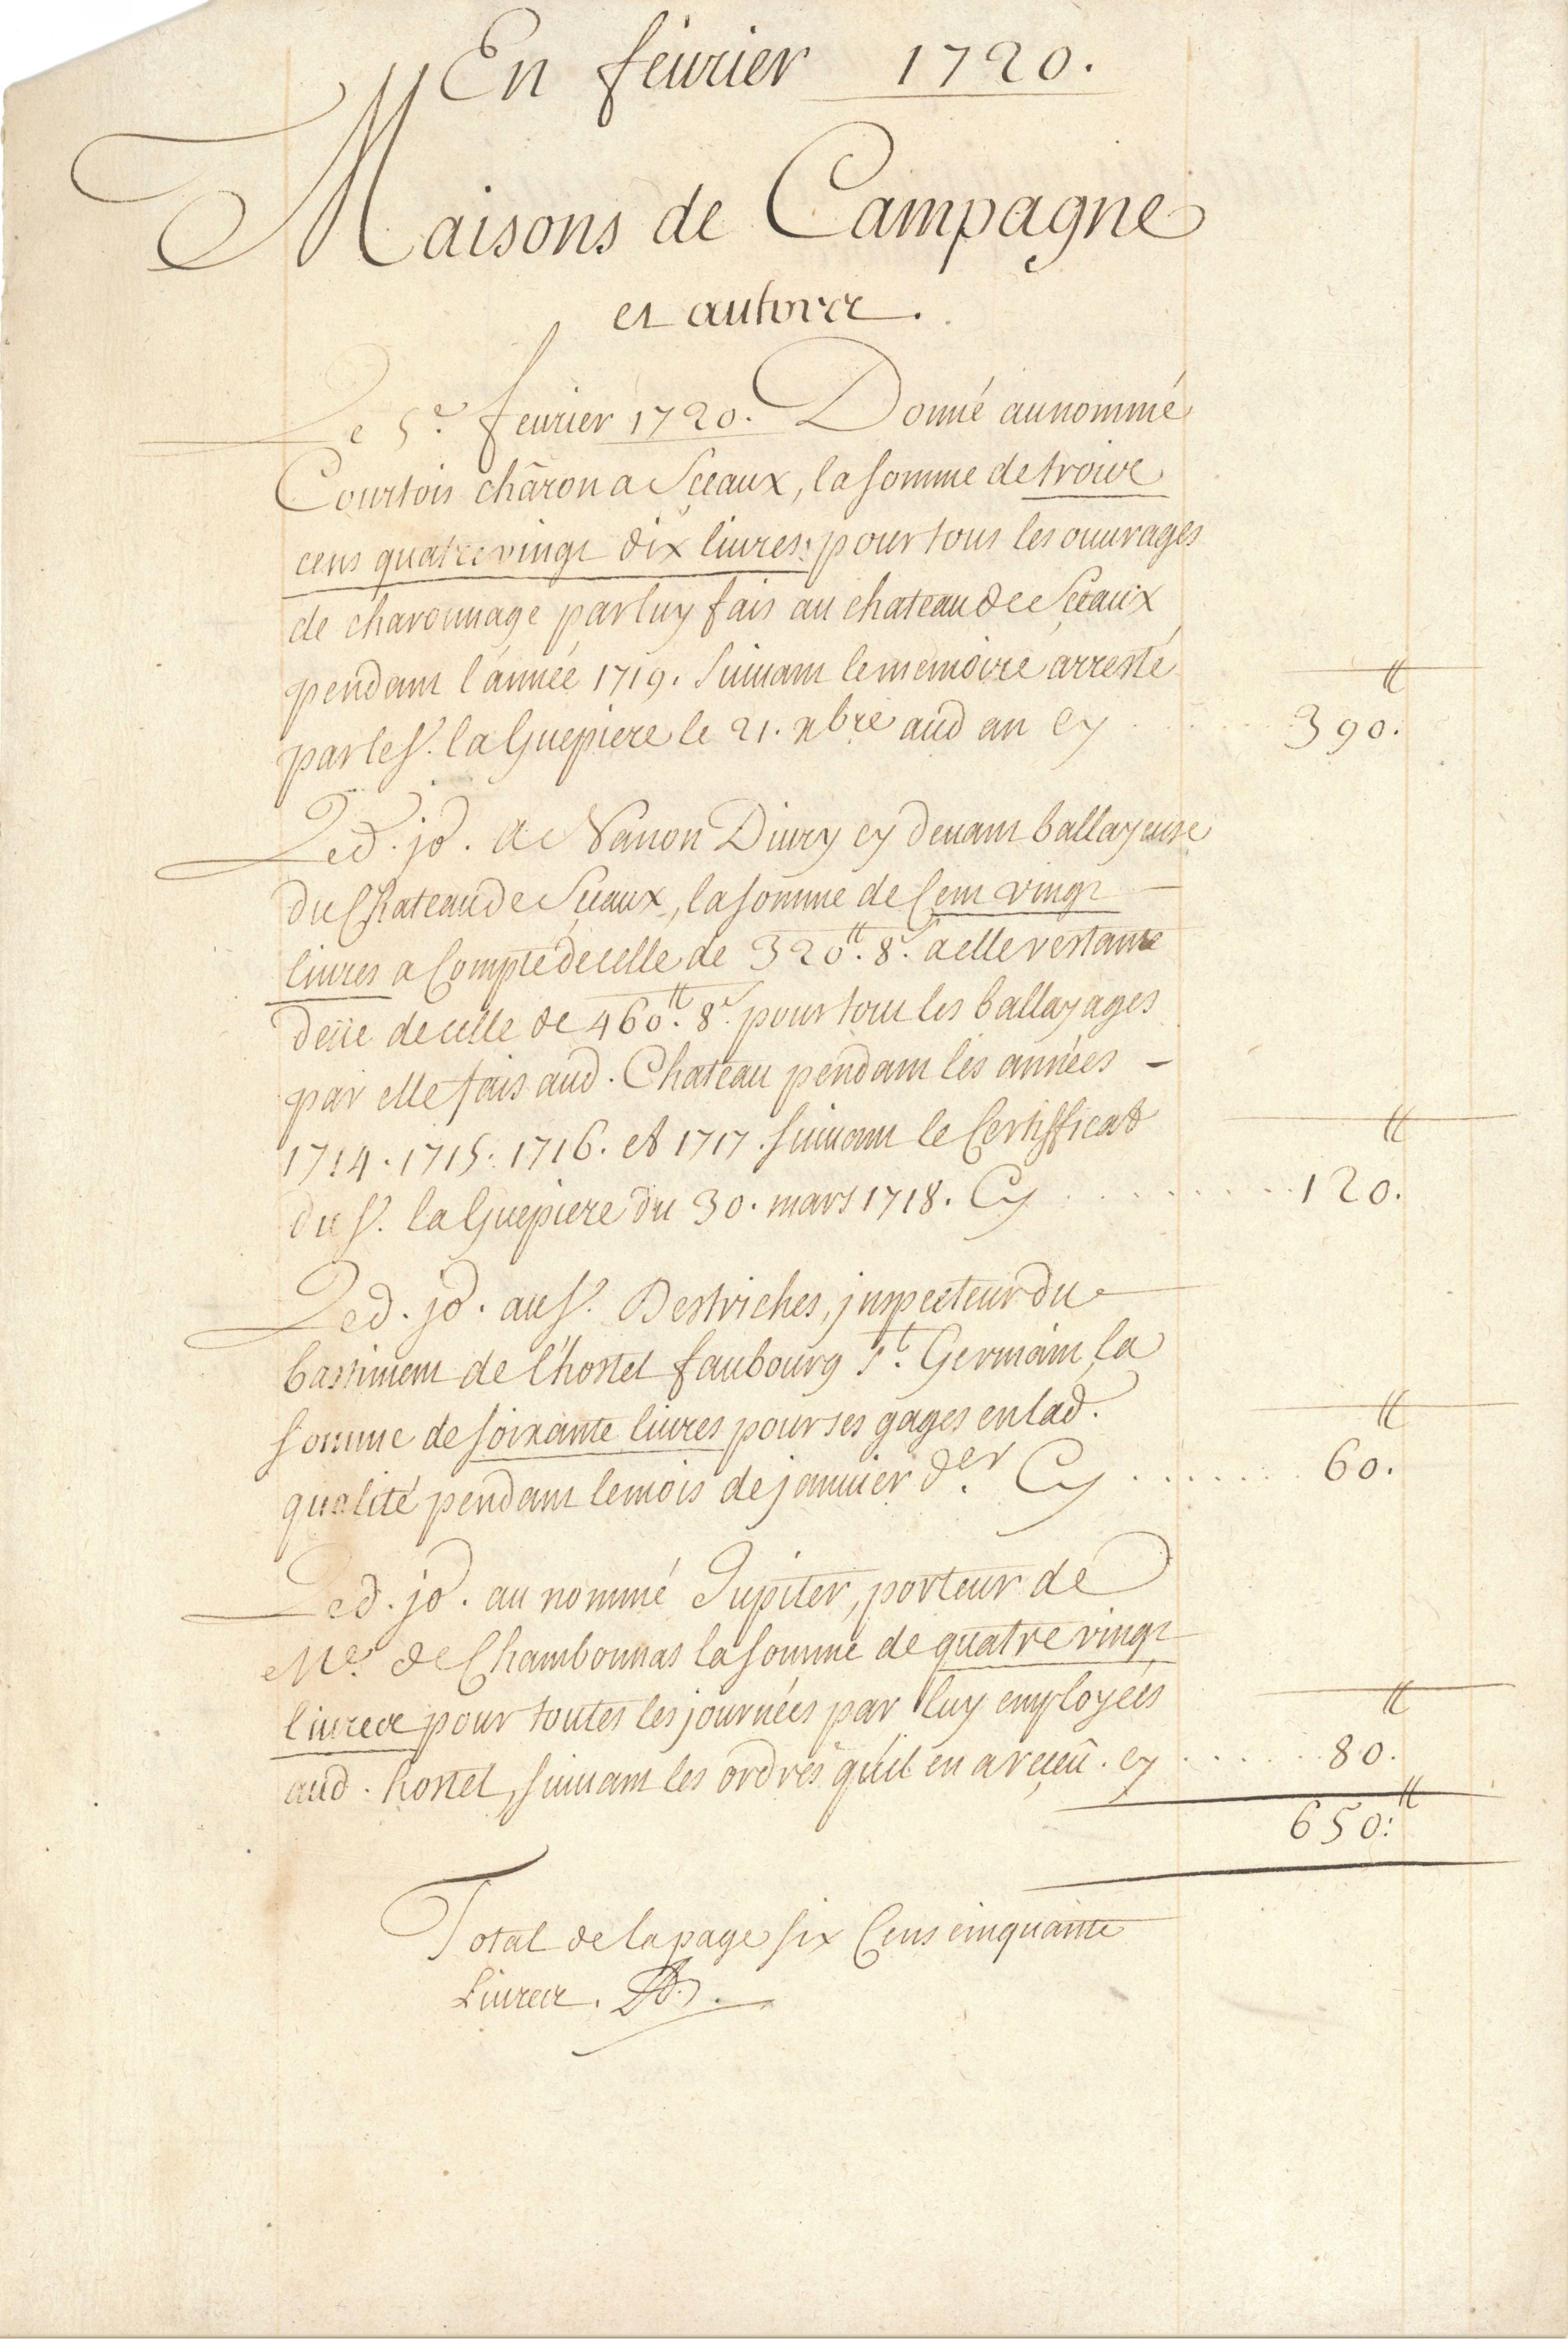 En feurier 1720.
Maisons de Campagne
et autres.
Le 5e. feurier 1720. Donné au nommé
Courtois châron a Sceaux, la somme de trois
cens quatre vingt dix liures, pour tous les ouurages
de charonnage par luy fais au chateau de Sceaux
pendant l'année 1719. suiuant le memoire arresté
par le Sr. la Guepiere le 21. nbre aud an Cy . . . . . 390.tt
Led. jo. a Nanon Diury cy deuant ballayeuse
du Chateau de Sceaux, la somme de Cent vingt
liures a Compte de celle de 320tt. 8s. a elle restante
deüe de celle de 460tt. 8s. pour tous les ballayages
par elle fais aud. Chateau pendant les années -
1714. 1715. 1716. et 1717. suiuant le Certifficat
du Sr. la Guepiere du 30. mars 1718. Cy . . . . . . . . 120.tt
Led. jo. au Sr. Destriches, jnspecteur du
bastiment de l'hostel faubourg St. Germain, la
somme de soixante liures pour ses gages en lad.
qualité pendant le mois de januier der. Cy . . . . . . . 60.tt
Led. jo. au nommé Jupiter, porteur de
Me. de Chambonnas la somme de quatre vingt
liures pour toutes les journées par luy employées
aud. hostel, suiuant les ordres qu'il en a reçeû. cy . . . . . . 80.tt
650:tt
Total de la page six Cens cinquante
Liures.